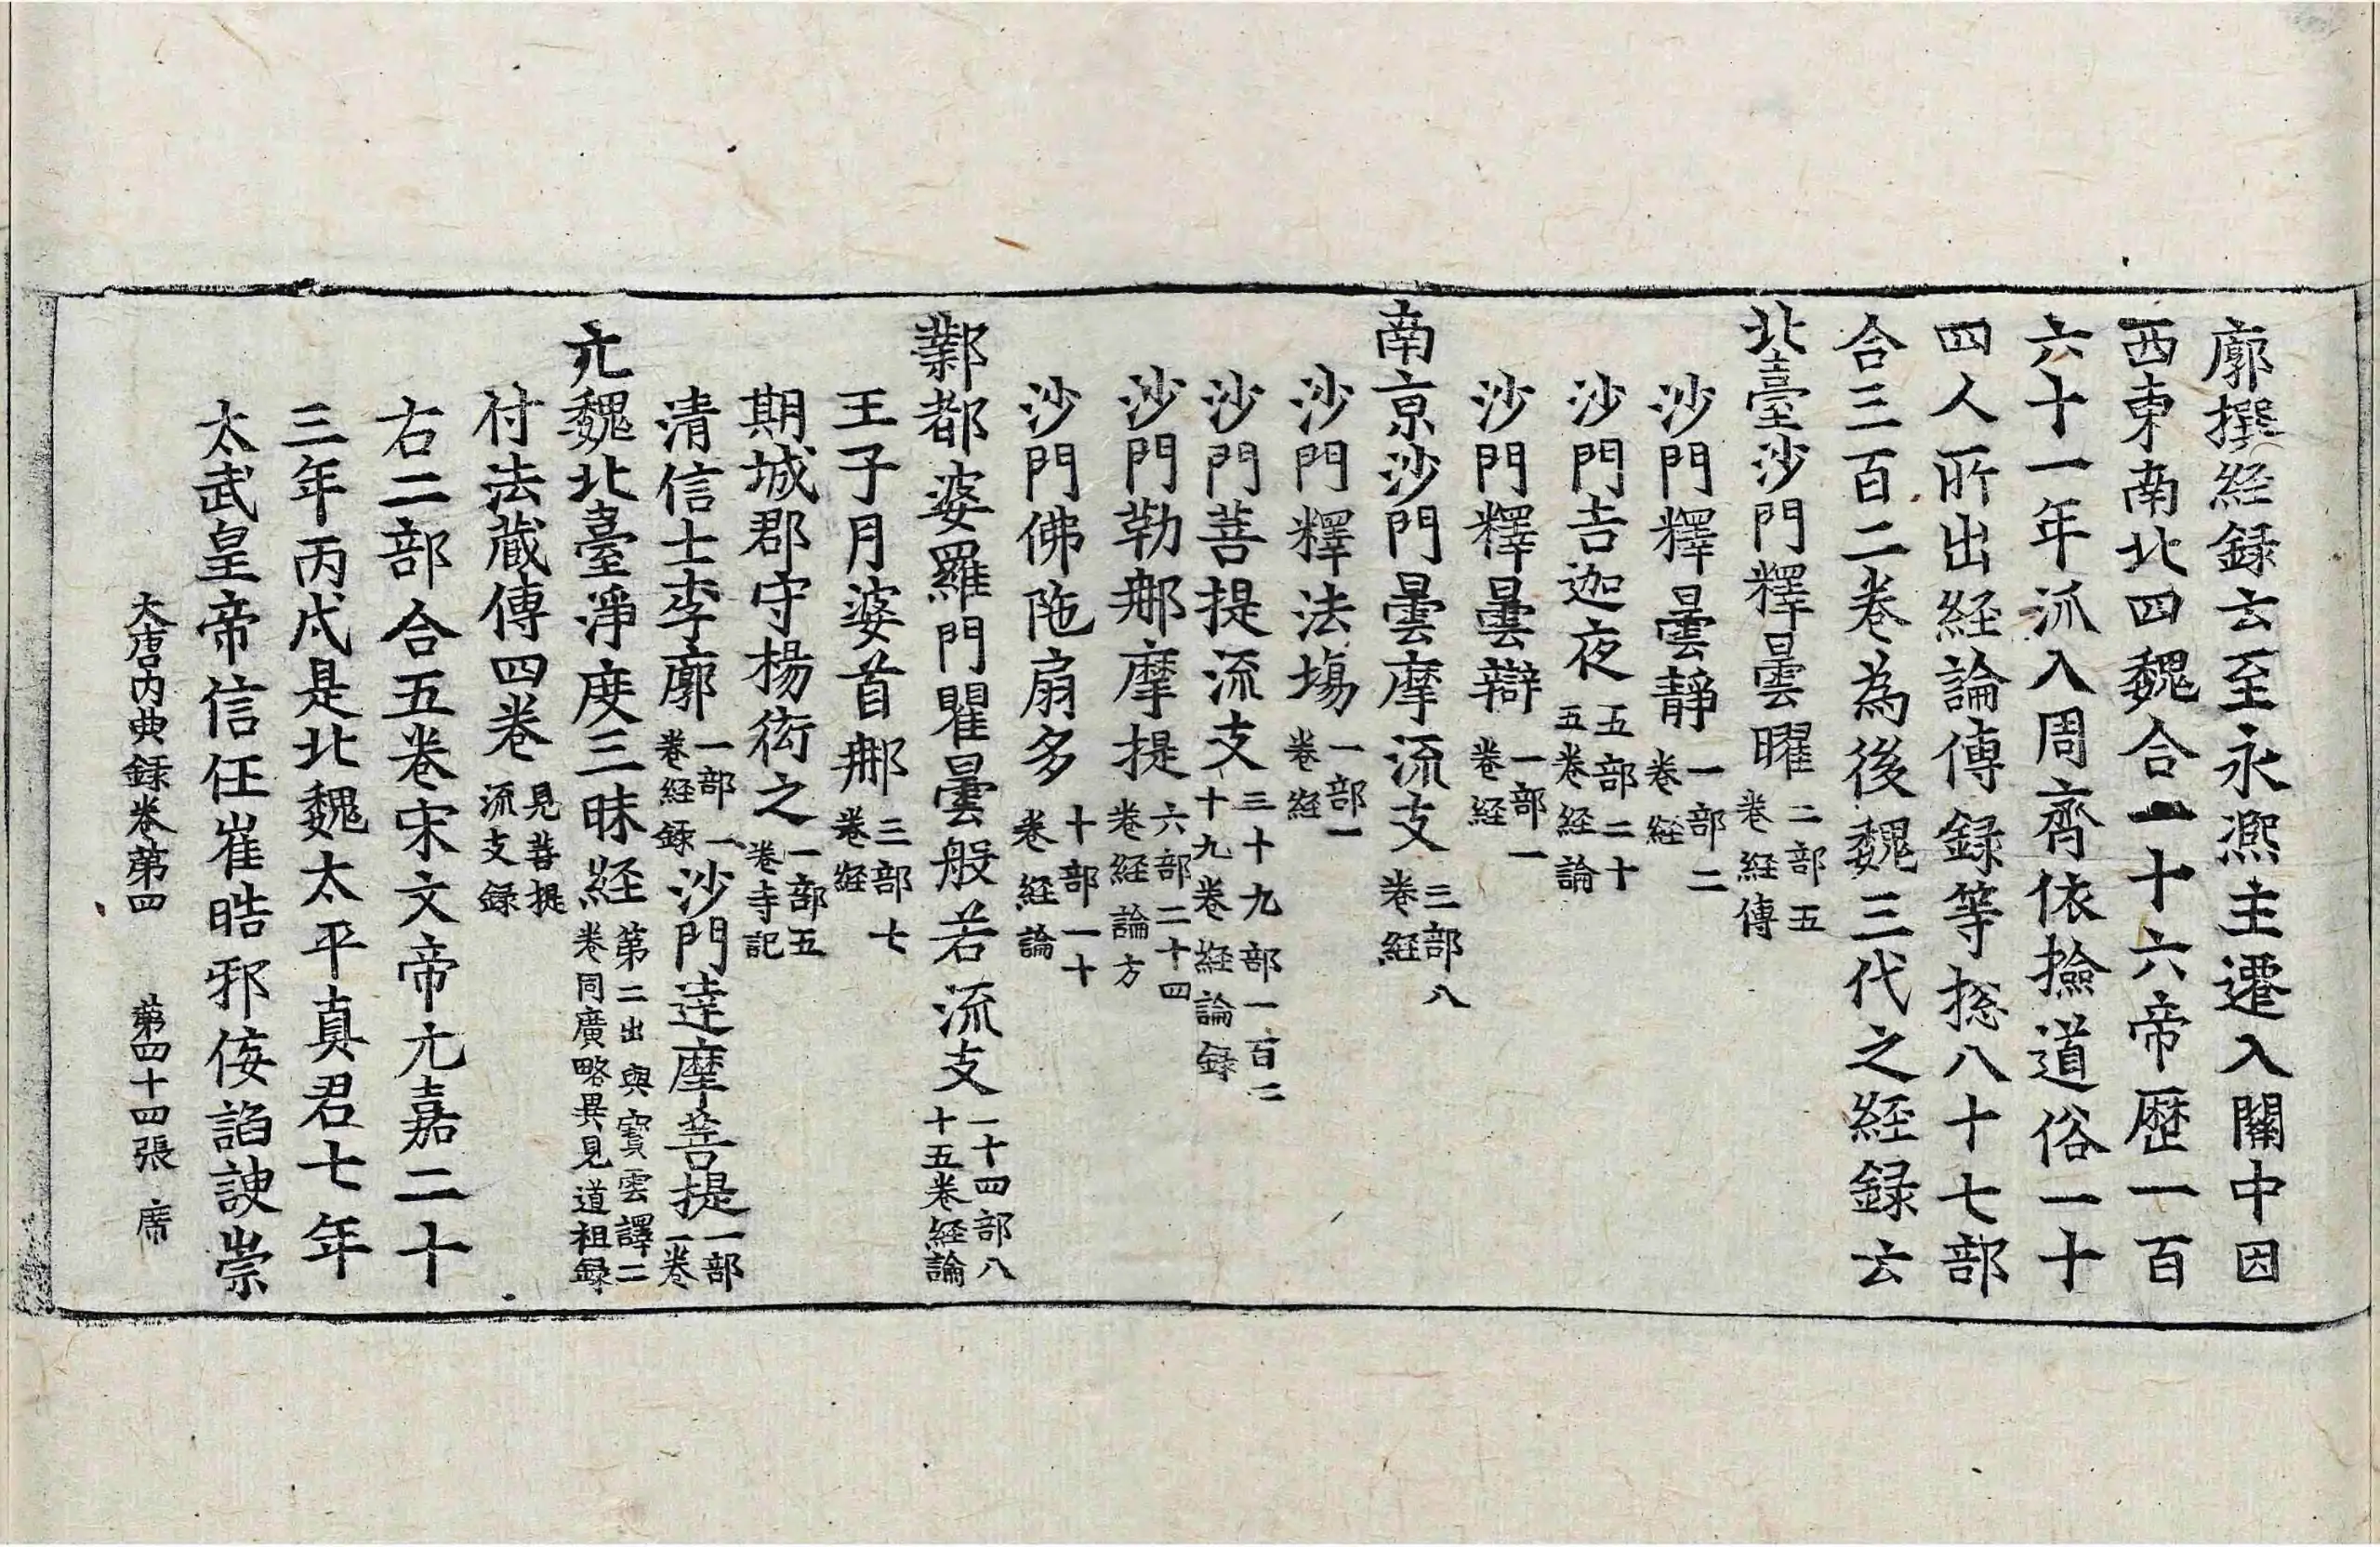 廓撰経録云至永熈主遷入關中因
西東南北四魏合一十六帝歷一百
六十一年派入周齊依撿道俗一十
四人所出経論傳録等捴八十七部
合三百二卷為後魏三代之経録云
北臺沙門釋曇曜二部五卷経傳
沙門釋曇靜一部二卷経
沙門吉迦夜五部二十五卷経論
沙門釋曇辯一部一卷経
南京沙門曇摩流支三部八卷経
沙門釋法場一部一卷経
沙門菩提流支三十九部一百二十九卷経論録
沙門勒那摩提六部二十四卷経論方
沙門佛陁扇多十部一十卷経論
鄴都婆羅門瞿曇般若流支一十四部八十五卷経論
王子月婆首那三部七卷経
期城郡守楊衒之一部五卷寺記
清信士李廓一部一卷経録沙門達摩菩提一部一卷
元魏北臺淨度三昧経第二出與寶雲譯二卷同廣略異見道祖録
付法蔵傳四卷見菩提流支録
右二部合五卷宋文帝元嘉二十
三年丙戌是北魏太平真君七年
太武皇帝信任崔晧邪侫諂諛崇
大唐内典録卷苐四 苐四十四張 席